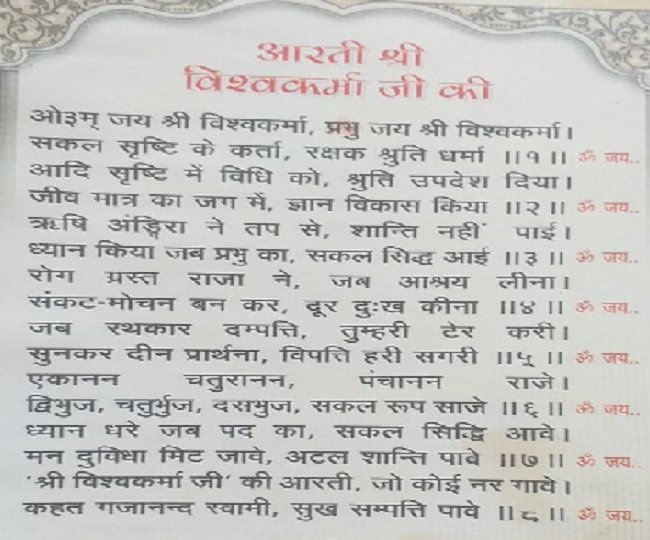 आरती श्री
विश्वकर्मा जी की
ओ३म् जय श्री विश्वकर्मा, प्रभु जय श्री विश्वकर्मा।
सकल सृष्टि के कर्ता, रक्षक श्रुति धर्मा ॥१॥ ॐ जय..
आदि सृष्टि में विधि को, श्रुति उपदेश दिया।
जीव मात्र का जग में, ज्ञान विकास किया ॥२॥ ॐ जय..
ऋषि अंङ्गिरा ने तप से, शान्ति नहीं पाई।
ध्यान किया जब प्रभु का, सकल सिद्ध आई ॥३॥ ॐ जय..
रोग ग्रस्त राजा ने, जब आश्रय लीना।
संकट-मोचन बन कर, दूर दुःख कीना ॥४॥ ॐ जय..
जब रथकार दम्पत्ति, तुम्हरी टेर करी।
सुनकर दीन प्रार्थना, विपत्ति हरी सगरी ॥५॥ ॐ जय..
एकानन चतुरानन, पंचानन राजे।
द्विभुज, चतुर्भुज, दसभुज, सकल रूप साजे ॥६॥ ॐ जय..
ध्यान धरे जब पद का, सकल सिद्धि आवे।
मन दुविधा मिट जावे, अटल शान्ति पावे ॥७॥ ॐ जय..
'श्री विश्वकर्मा जी' की आरती, जो कोई नर गावे।
कहत गजानन्द स्वामी, सुख सम्पत्ति पावे ॥८॥ ॐ जय..